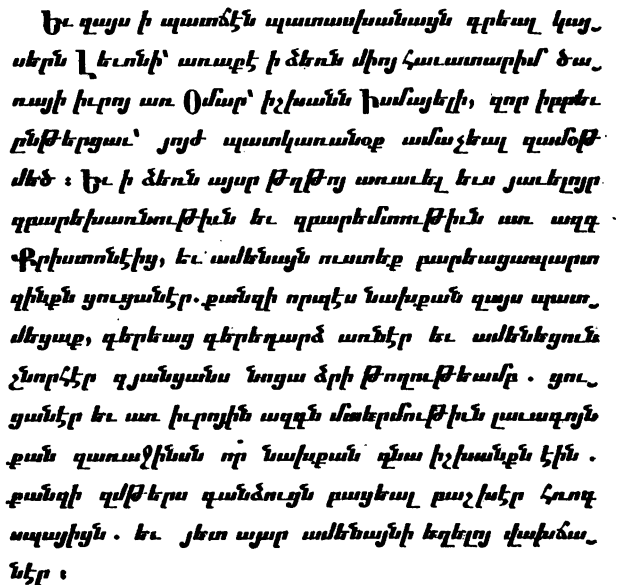 Եւ զայս ի պատճէն պատասխանայն գրեալ կայ֊
սերն Լեւոնի՝ առաքէ ի ձեռն միոյ հաւատարիմ ծա֊
ռայի իւրոյ առ Օմար՝ իշխանն Իսմայելի, զոր իբրեւ
ընթերցաւ՝ յոյժ պատկառանօք ամաչեալ զամօթ
մեծ ։ Եւ ի ձեռն այսր թղթոյ առաւել եւս յաւելոյր
զբարեխառնութիւն եւ զբարեմտութիւն առ ազգ
Քրիստոնէից, եւ ամենայն ուստեք բարեացապարտ
զինքն ցուցանէր. քանզի որպէս նախքան զայս պատ֊
մեցաք, զգերեաց զգերեդարձ առնէր եւ ամենեցուն
շնորհէր զյանցանս նոցա ձրի թողութեամբ . ցու֊
ցանէր եւ առ իւրոյին ազգն մտերմութիւն լաւագոյն
քան զառաջինսն որ նախքան զնա իշխանքն էին .
քանզի զմթերս գանձուցն բացեալ բաշխէր հռոգ
սպայիցն . եւ յետ այսր ամենայնի եղելոյ վախճա֊
նէր ։